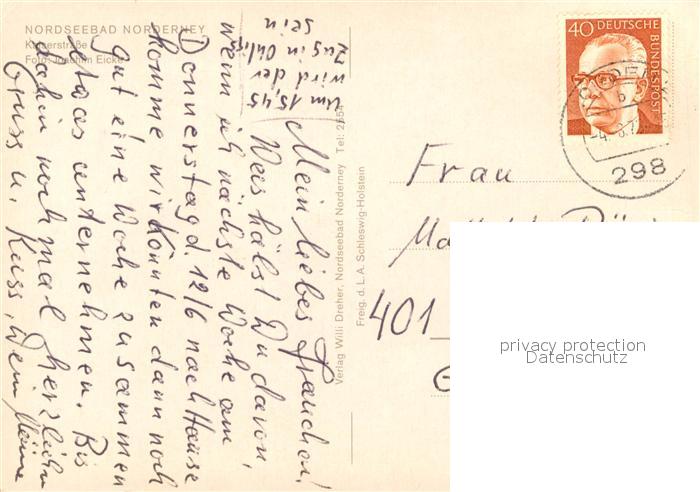 NORDSEEBAD NORDERNEY
Kaiserstraße
Foto: Joachim Eicke
Mein liebes Frauchen!
Was hälst Du davon,
wenn ich nächste Woche am
Donnerstag d. 12/6 nach Hause
komme wir könnten dann noch
gut eine Woche zusammen
etwas unternehmen. Bis
dahin nochmal herzlichen
Gruss u. Kuss, Dein
um 15,45
wird der
Zug in
sein
Verlag Willi Dreher, Nordseebad Norderney Tel: 2554
Freig. d. L.A. Schleswig-Holstein
40 DEUTSCHE BUNDESPOST
b
298
Frau
401
privacy protection
Datenschutz